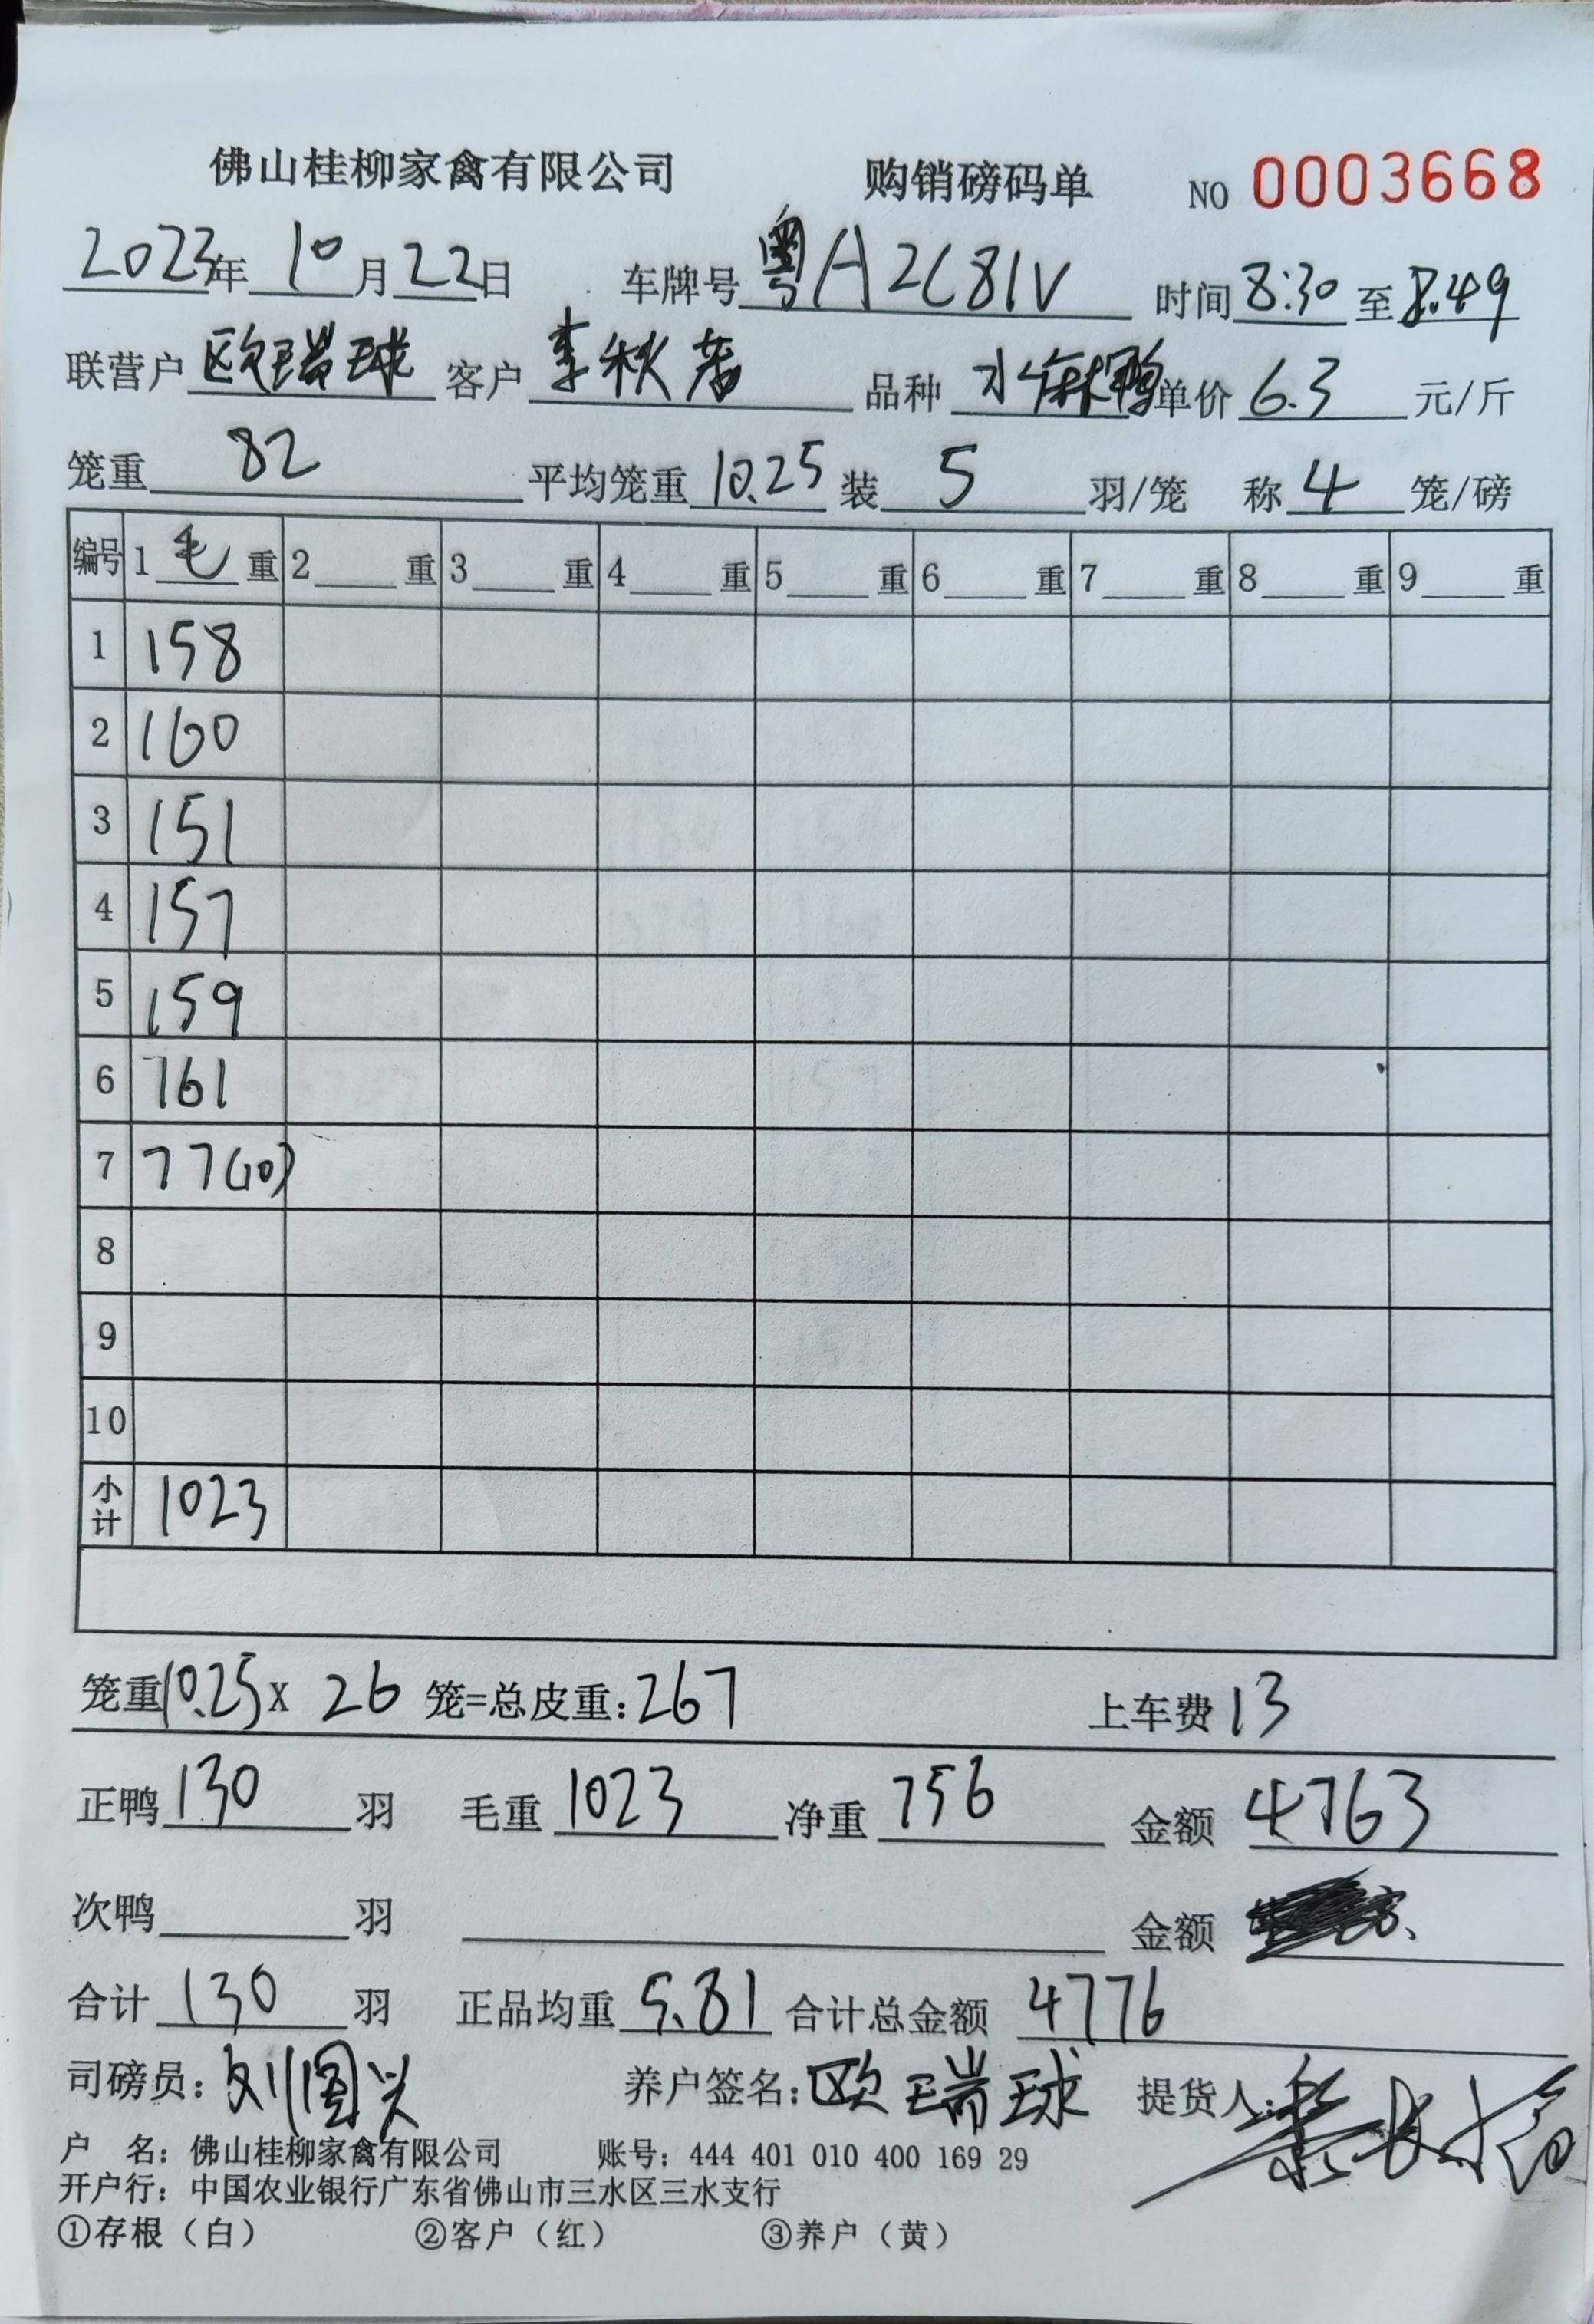 佛山桂柳家禽有限公司 购销磅码单 NO 0003668
2023年10月22日 车牌号粤A2C81V 时间8:30至8.49
联营户欧瑞球 客户李秋 品种水麻鸭 单价6.3元/斤
笼重82 平均笼重10.25 装5羽/笼 称4笼/磅
编号 1毛重 2重 3重 4重 5重 6重 7重 8重 9重
1 158
2 160
3 151
4 157
5 159
6 161
7 77(10)
8
9
10
小计 1023
笼重10.25X26笼=总皮重:267 上车费13
正鸭130羽 毛重1023 净重756 金额4763
次鸭 羽 金额
合计130羽 正品均重5.81 合计总金额4776
司磅员:刘国兴 养户签名:欧瑞球 提货人:
户 名:佛山桂柳家禽有限公司 账号:444 401 010 400 169 29
开户行:中国农业银行广东省佛山市三水区三水支行
①存根（白） ②客户（红） ③养户（黄）